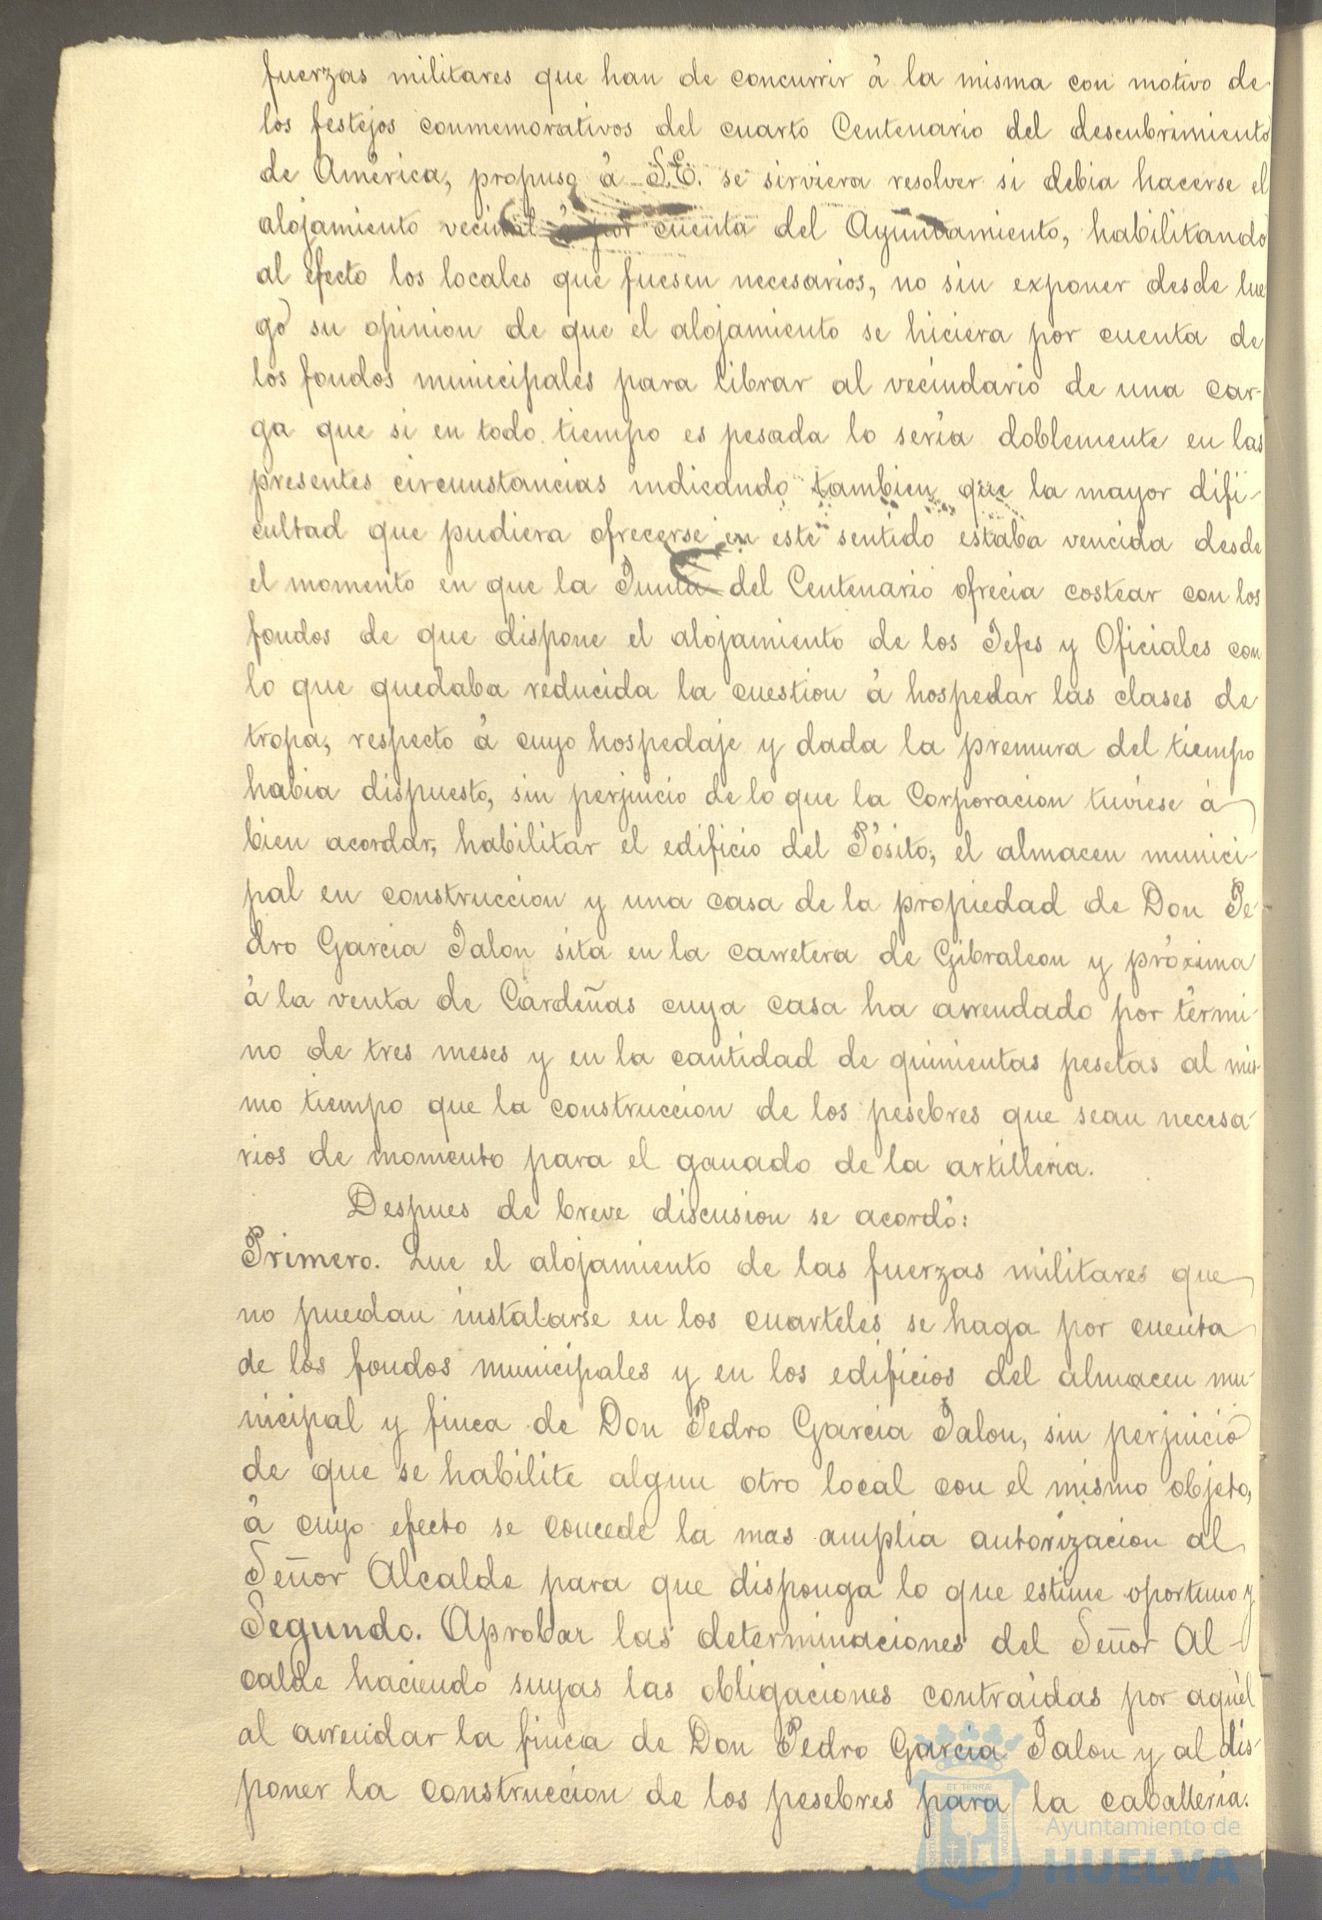 fuerzas militares que han de concurrir á la misma con motivo de
los festejos conmemorativos del cuarto Centenario del descubrimiento
de América, propuso á S.E. se sirviera resolver si debia hacerse el
alojamiento vecinal ó por cuenta del Ayuntamiento, habilitando
al efecto los locales que fuesen necesarios, no sin exponer desde lue
go su opinion de que el alojamiento se hiciera por cuenta de
los fondos municipales para librar al vecindario de una car-
ga que si en todo tiempo es pesada lo seria doblemente en las
presentes circunstancias indicando tambien que la mayor difi-
cultad que pudiera ofrecerse en este sentido estaba vencida desde
el momento en que la Junta del Centenario ofrecia costear con los
fondos de que dispone el alojamiento de los Jefes y Oficiales con
lo que quedaba reducida la cuestion á hospedar las clases de
tropa, respecto á cuyo hospedaje y dada la premura del tiempo
habia dispuesto, sin perjuicio de lo que la Corporacion tuviese á
bien acordar, habilitar el edificio del Pósito, el almacen munici-
pal en construccion y una casa de la propiedad de Don Pe-
dro Garcia Jalon sita en la carretera de Gibraleon y próxima
á la venta de Cardeñas cuya casa ha arrendado por térmi-
no de tres meses y en la cantidad de quinientas pesetas al mis-
mo tiempo que la construccion de los pesebres que sean necesa-
rios de momento para el ganado de la artilleria.
Despues de breve discusion se acordó:
Primero. Que el alojamiento de las fuerzas militares que
no puedan instalarse en los cuarteles se haga por cuenta
de los fondos municipales y en los edificios del almacen mu-
nicipal y finca de Don Pedro Garcia Jalon, sin perjuicio
de que se habilite algun otro local con el mismo objeto,
á cuyo efecto se concede la mas amplia autorizacion al
Señor Alcalde para que disponga lo que estime oportuno y
Segundo. Aprobar las determinaciones del Señor Al-
calde haciendo suyas las obligaciones contraidas por aquél
al arrendar la finca de Don Pedro Garcia Jalon y al dis-
poner la construccion de los pesebres para la caballeria.
Ayuntamiento de
HUELVA